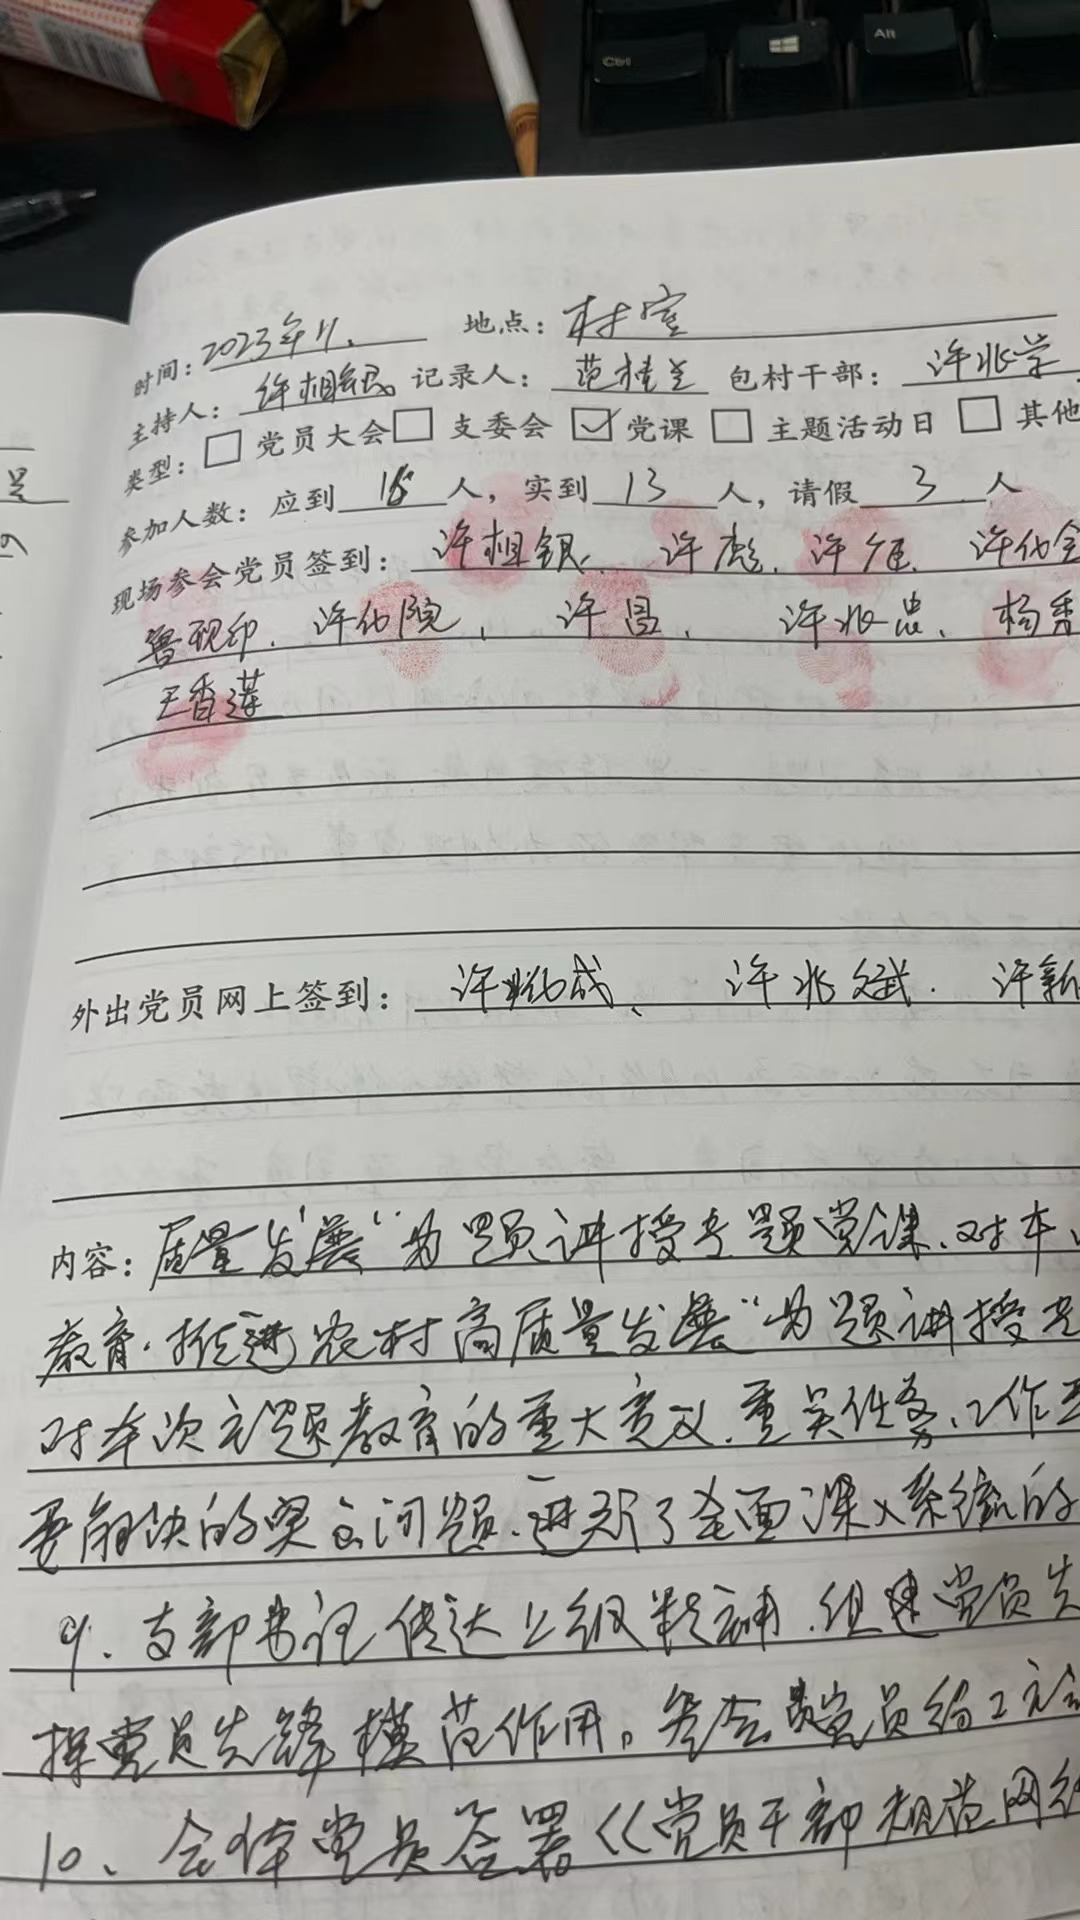 Ctrl
Alt
时间：2023年11. 地点：村室
主持人：许相银 记录人：范桂兰 包村干部：许兆学
类型：□党员大会□支委会☑党课□主题活动日□其他
参加人数：应到16人，实到13人，请假3人
现场参会党员签到：许相银、许彪、许 许化
鲁砚印、许化院、许昌、许兆忠、杨秀
王香莲
外出党员网上签到：许 成、许兆斌. 许新
内容：质量发展“为题讲授专题党课、对本
教育·推进农村高质量发展“为题讲授专
对本次主题教育的重大意义、重点任务、工作
要解决的突出问题、进行了全面深入系统的
9、支部书记传达上级精神、组建党员先
挥党员先锋模范作用。 会 党员
10、全体党员签署《党员干部规范网络